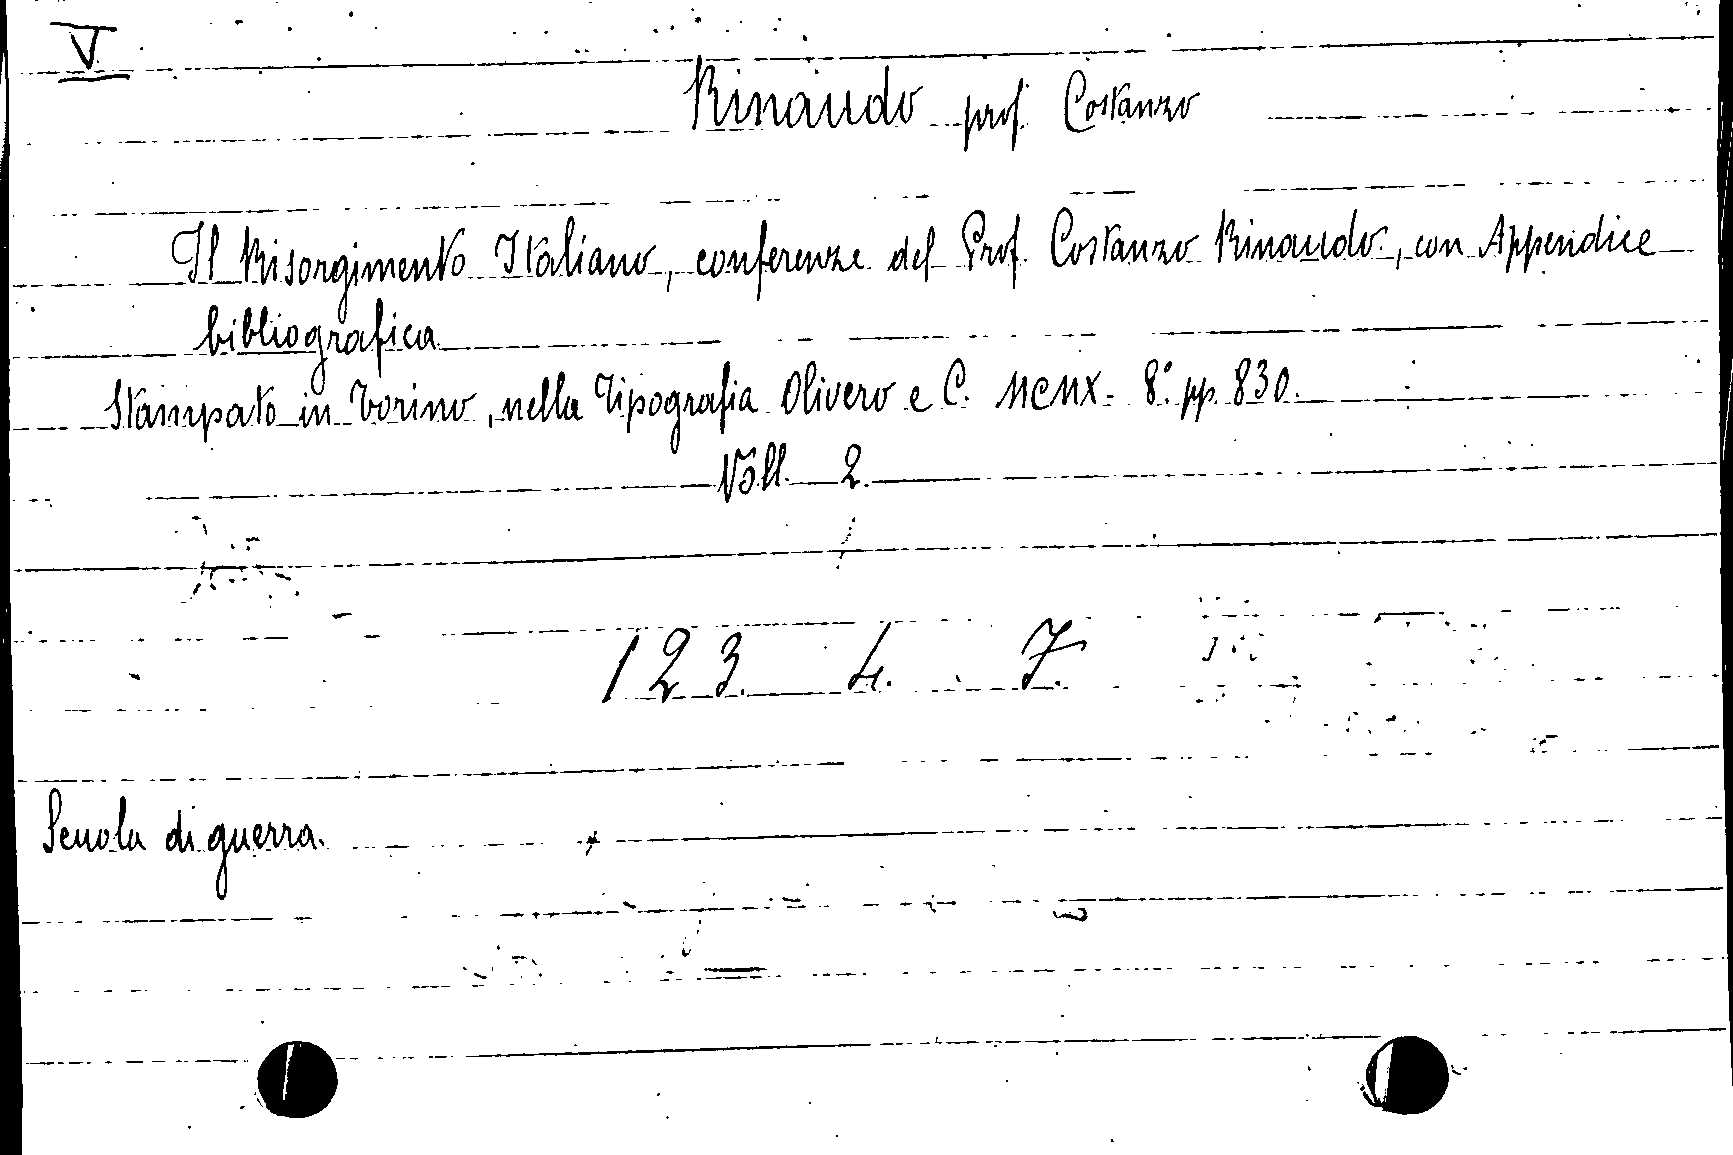 V
Rinaudo prof. Costanzo
Il Risorgimento Italiano, conferenze del Prof. Costanzo Rinaudo, con Appendice
bibliografica
Stampato in Torino, nella Tipografia Olivero e C. MCMX. 8.° pp. 830.
Voll. 2.
123. 4. 7.
Scuola di guerra.